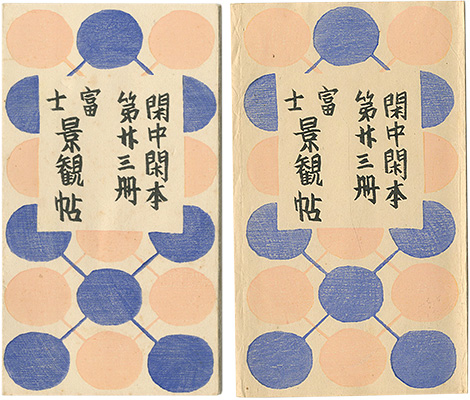 閑中閑本
第廾三冊
富士景観帖
閑中閑本
第廾三冊
富士景観帖